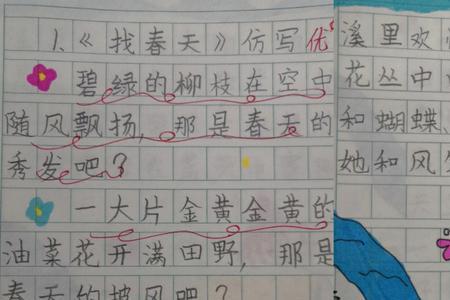 1.《找春天》仿写 优
碧绿的柳枝在空中
随风飘扬，那是春天的
秀发吧？
一大片金黄金黄的
油菜花开满田野，那是
春天的披风吧？
溪里欢
花丛中
和蝴蝶、
她和风